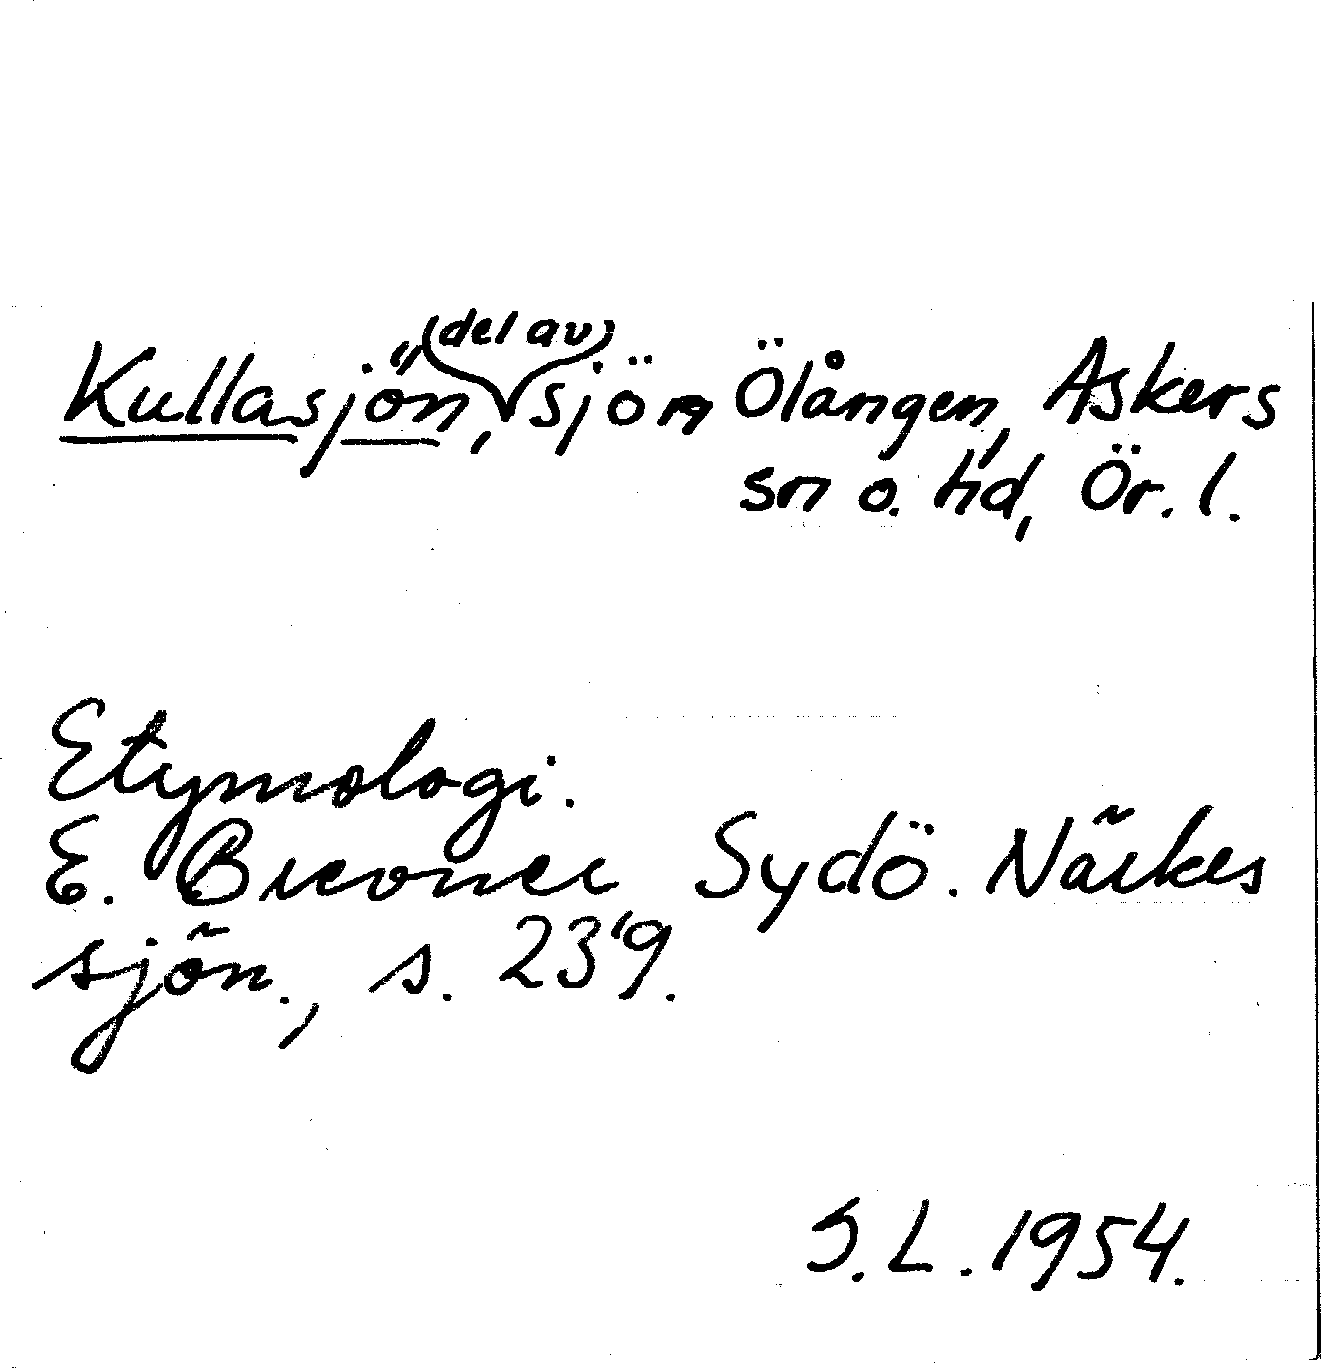 Kullasjön, (del av) sjön Ölången, Askers
sn o. hd, Ör. l.
Etymologi.
E. Brevner Sydö. Närkes
sjön., s. 239.
S. L. 1954.